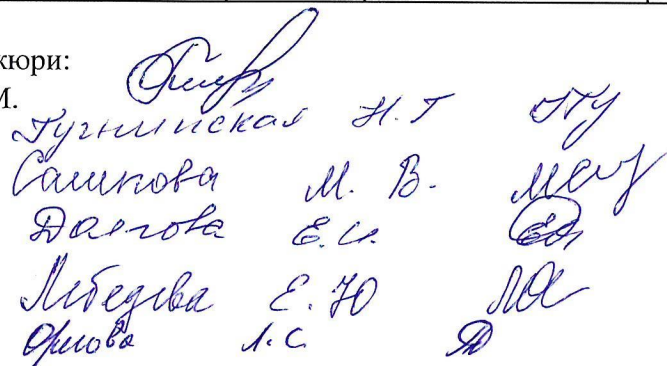 жюри:
М.
Тучнинская Н.Г
Сашкова М. В.
Долгова Е.И.
Лебедева Е.Ю
Орлова Л.С.